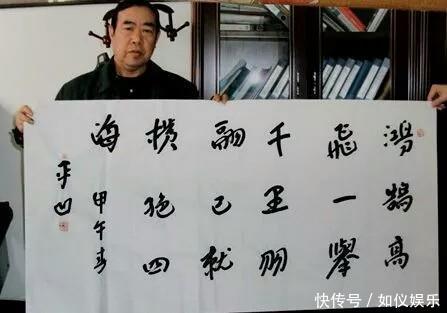 鸿鹄高
飛一舉
千里羽
翮已就
横绝四
海 甲午
平凹
快传号/如仪娱乐